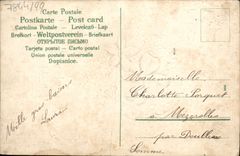 7864/99
Carte Postale
Postkarte - Post card
Cartolina Postale - Levelező-Lap
Brefkort - Weltpostverein - Briefkaart
ОТКРЫТОЕ ПИСЬМО
Tarjeta postal - Carto postal
Union postale universelle
Dopisnice.
Mille gros baisers
Laure
Mademoiselle
Charlotte
à Mézerolles
par Doullens
Somme